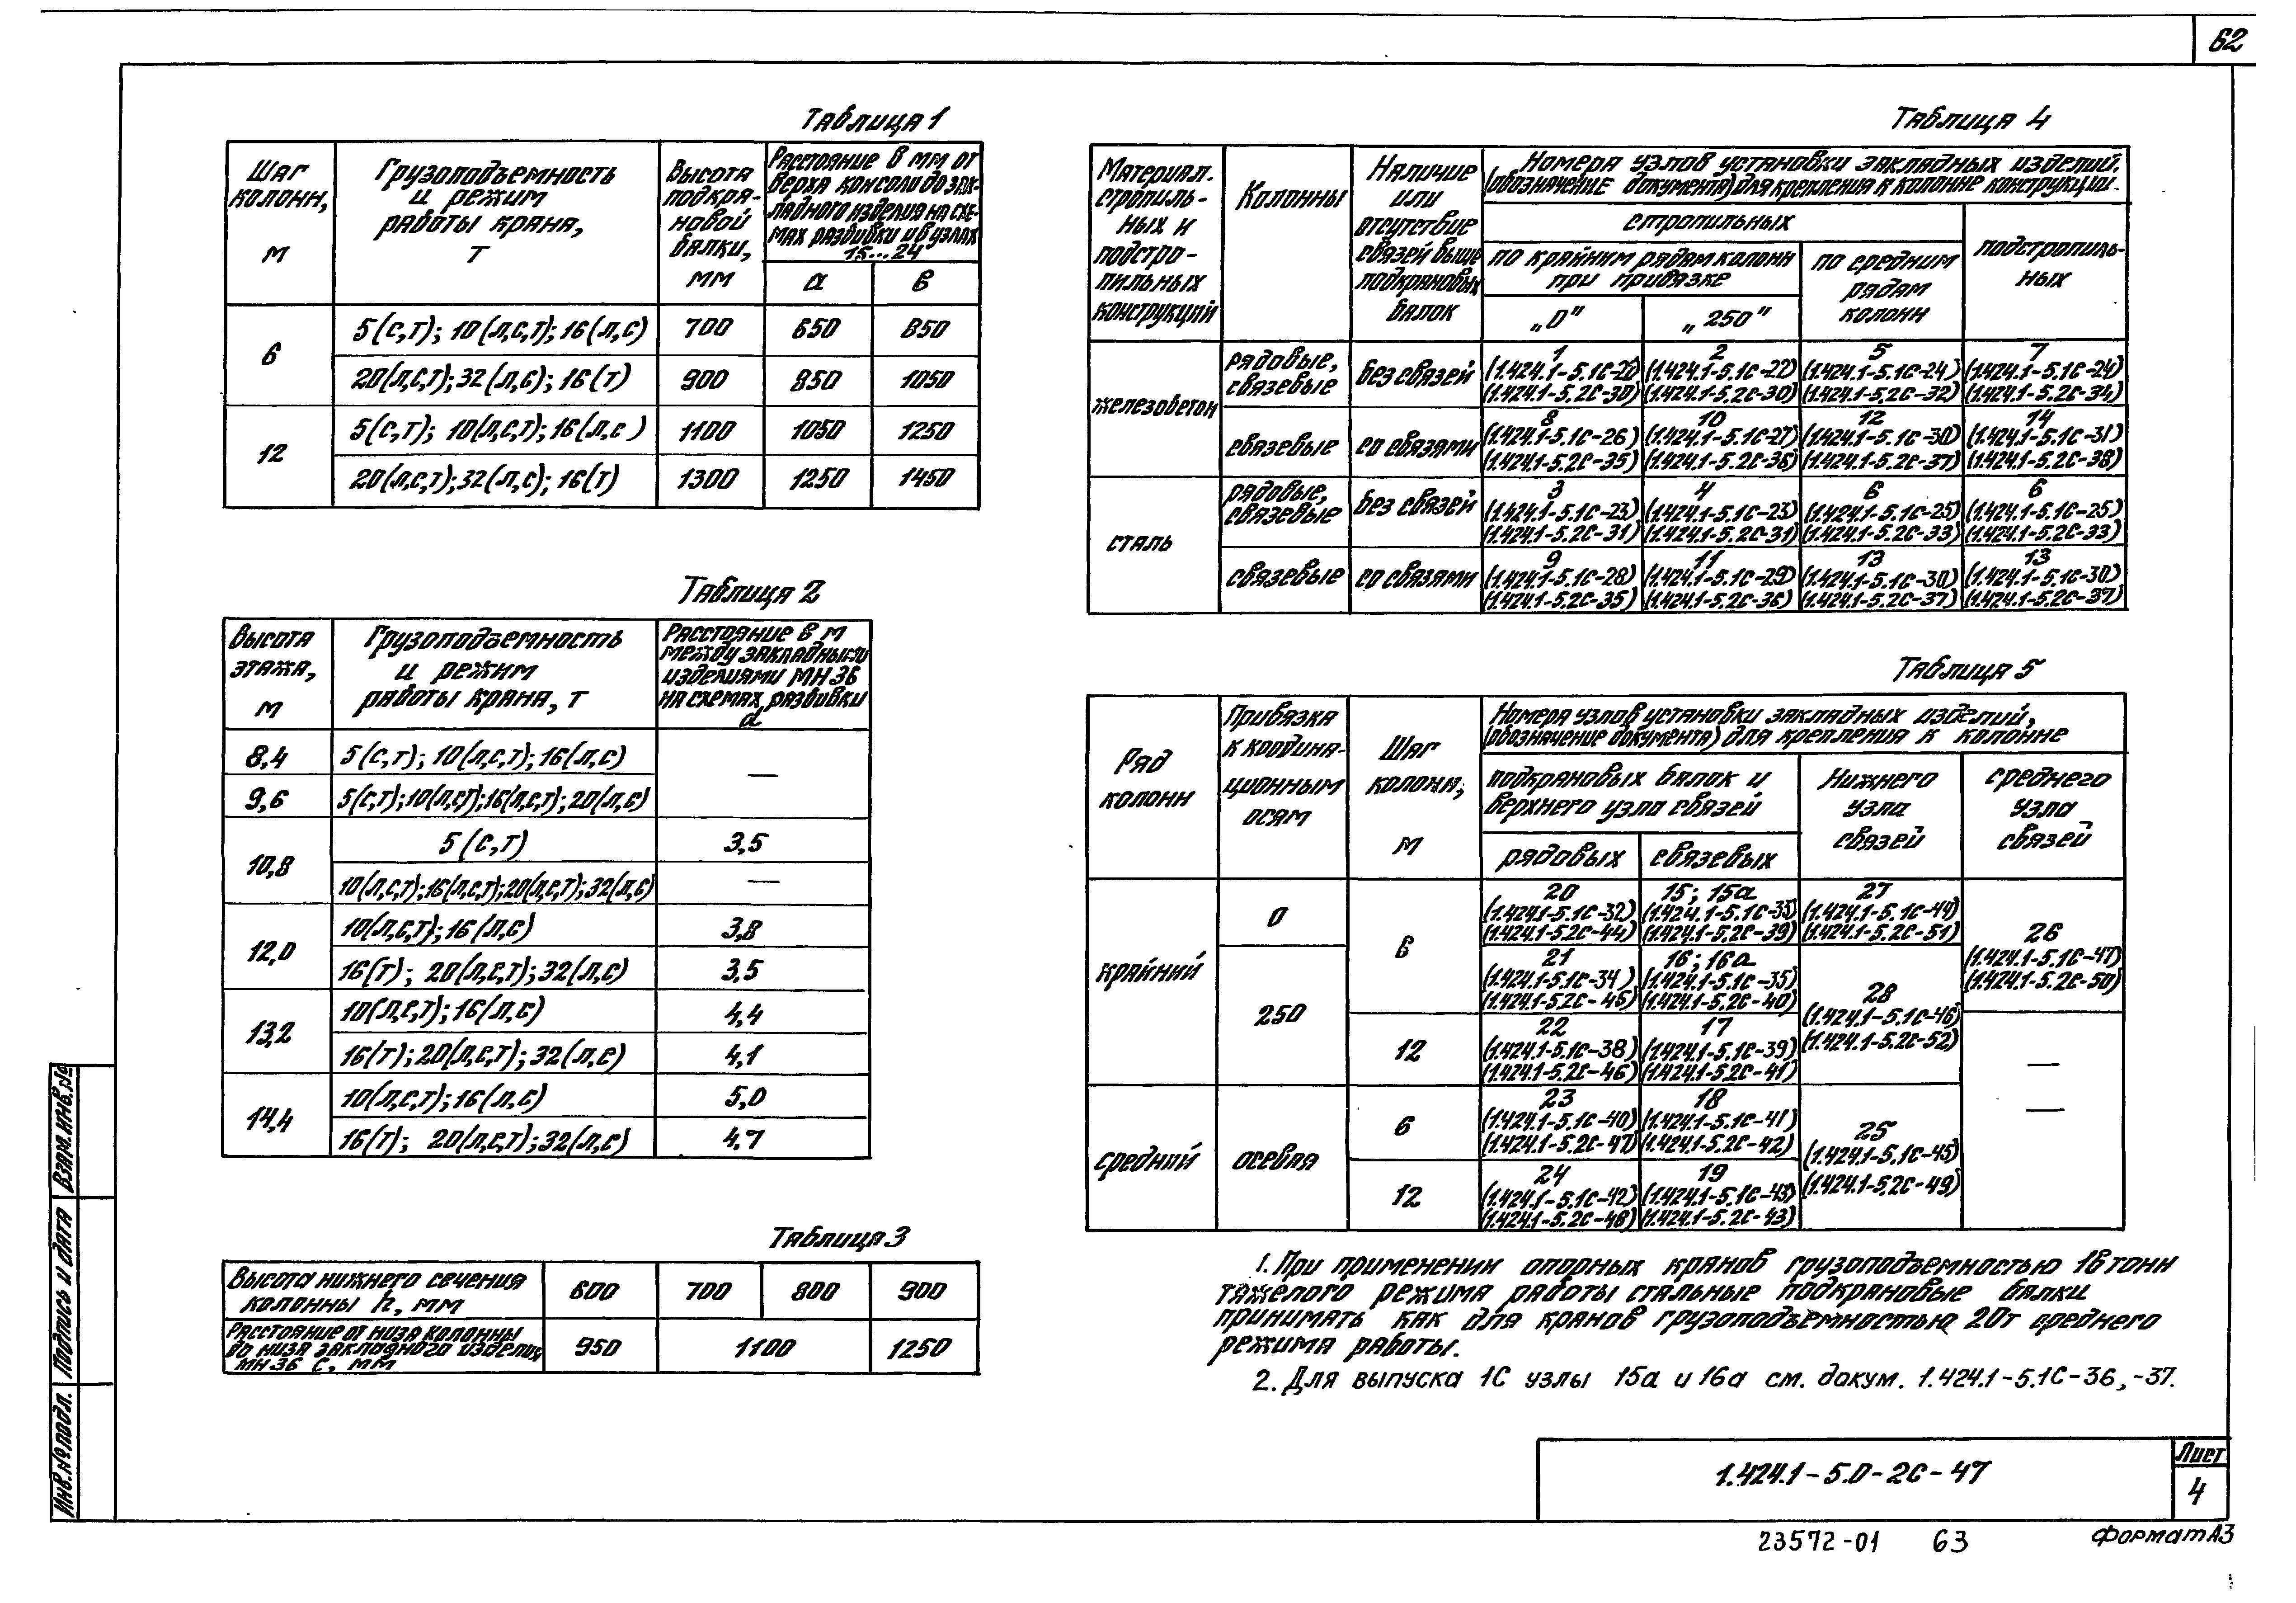 62
Таблица 1
Шаг колонн, м
Грузоподъемность и режим работы крана, т
Высота подкрановой балки, мм
Расстояние в мм от верха консоли до закладного изделия на схемах разбивки и в узлах 15...24
а
в
6
5(с,т); 10(л,с,т); 16(л,с)
700
650
850
20(л,с,т); 32(л,с); 16(т)
900
850
1050
12
5(с,т); 10(л,с,т); 16(л,с)
1100
1050
1250
20(л,с,т); 32(л,с); 16(т)
1300
1250
1450
Таблица 2
Высота этажа, м
Грузоподъемность и режим работы крана, т
Расстояние в м между закладными изделиями МН36 на схемах разбивки d
8,4
5(с,т); 10(л,с,т); 16(л,с)
—
9,6
5(с,т); 10(л,с,т); 16(л,с,т); 20(л,с)
10,8
5(с,т)
3,5
10(л,с,т); 16(л,с,т); 20(л,с,т); 32(л,с)
—
12,0
10(л,с,т); 16(л,с)
3,8
16(т); 20(л,с,т); 32(л,с)
3,5
13,2
10(л,с,т); 16(л,с)
4,4
16(т); 20(л,с,т); 32(л,с)
4,1
14,4
10(л,с,т); 16(л,с)
5,0
16(т); 20(л,с,т); 32(л,с)
4,7
Таблица 3
Высота нижнего сечения колонны h, мм
600
700
800
900
Расстояние от низа колонны до низа закладного изделия МН36 С, мм
950
1100
1250
Таблица 4
Материал стропильных и подстропильных конструкций
Колонны
Наличие или отсутствие связей выше подкрановых балок
Номера узлов установки закладных изделий,
(обозначение документа) для крепления к колонне конструкции
стропильных
подстропильных
по крайним рядам колонн при привязке
по средним рядам колонн
„0"
„250"
железобетон
рядовые, связевые
без связей
1
(1.424.1-5.1С-22)
(1.424.1-5.2С-30)
2
(1.424.1-5.1С-22)
(1.424.1-5.2С-30)
5
(1.424.1-5.1С-24)
(1.424.1-5.2С-32)
7
(1.424.1-5.1С-24)
(1.424.1-5.2С-34)
связевые
со связями
8
(1.424.1-5.1С-26)
(1.424.1-5.2С-35)
10
(1.424.1-5.1С-27)
(1.424.1-5.2С-36)
12
(1.424.1-5.1С-30)
(1.424.1-5.2С-37)
14
(1.424.1-5.1С-31)
(1.424.1-5.2С-38)
сталь
рядовые, связевые
без связей
3
(1.424.1-5.1С-23)
(1.424.1-5.2С-31)
4
(1.424.1-5.1С-23)
(1.424.1-5.2С-31)
6
(1.424.1-5.1С-25)
(1.424.1-5.2С-33)
6
(1.424.1-5.1С-25)
(1.424.1-5.2С-33)
связевые
со связями
9
(1.424.1-5.1С-28)
(1.424.1-5.2С-35)
11
(1.424.1-5.1С-29)
(1.424.1-5.2С-36)
13
(1.424.1-5.1С-30)
(1.424.1-5.2С-37)
13
(1.424.1-5.1С-30)
(1.424.1-5.2С-37)
Таблица 5
Ряд колонн
Привязка к координационным осям
Шаг колонн, м
Номера узлов установки закладных изделий,
(обозначение документа) для крепления к колонне
подкрановых балок и верхнего узла связей
Нижнего узла связей
среднего узла связей
рядовых
связевых
крайний
0
6
20
(1.424.1-5.1С-32)
(1.424.1-5.2С-44)
15; 15а
(1.424.1-5.1С-33)
(1.424.1-5.2С-39)
27
(1.424.1-5.1С-44)
(1.424.1-5.2С-51)
26
(1.424.1-5.1С-47)
(1.424.1-5.2С-50)
250
21
(1.424.1-5.1С-34)
(1.424.1-5.2С-45)
16; 16а
(1.424.1-5.1С-35)
(1.424.1-5.2С-40)
28
(1.424.1-5.1С-46)
(1.424.1-5.2С-52)
12
22
(1.424.1-5.1С-38)
(1.424.1-5.2С-46)
17
(1.424.1-5.1С-39)
(1.424.1-5.2С-41)
—
средний
осевая
6
23
(1.424.1-5.1С-40)
(1.424.1-5.2С-47)
18
(1.424.1-5.1С-41)
(1.424.1-5.2С-42)
25
(1.424.1-5.1С-45)
(1.424.1-5.2С-49)
—
12
24
(1.424.1-5.1С-42)
(1.424.1-5.2С-48)
19
(1.424.1-5.1С-43)
(1.424.1-5.2С-43)
1. При применении опорных кранов грузоподъемностью 16 тонн
тяжелого режима работы стальные подкрановые балки
принимать как для кранов грузоподъемностью 20т среднего
режима работы.
2. Для выпуска 1С узлы 15а и 16а см. докум. 1.424.1-5.1С-36,-37.
1.424.1-5.0-2С-47
Лист
4
23572-01 63
Формат А3
Инв.№ подл.
Подпись и дата
Взам.инв.№